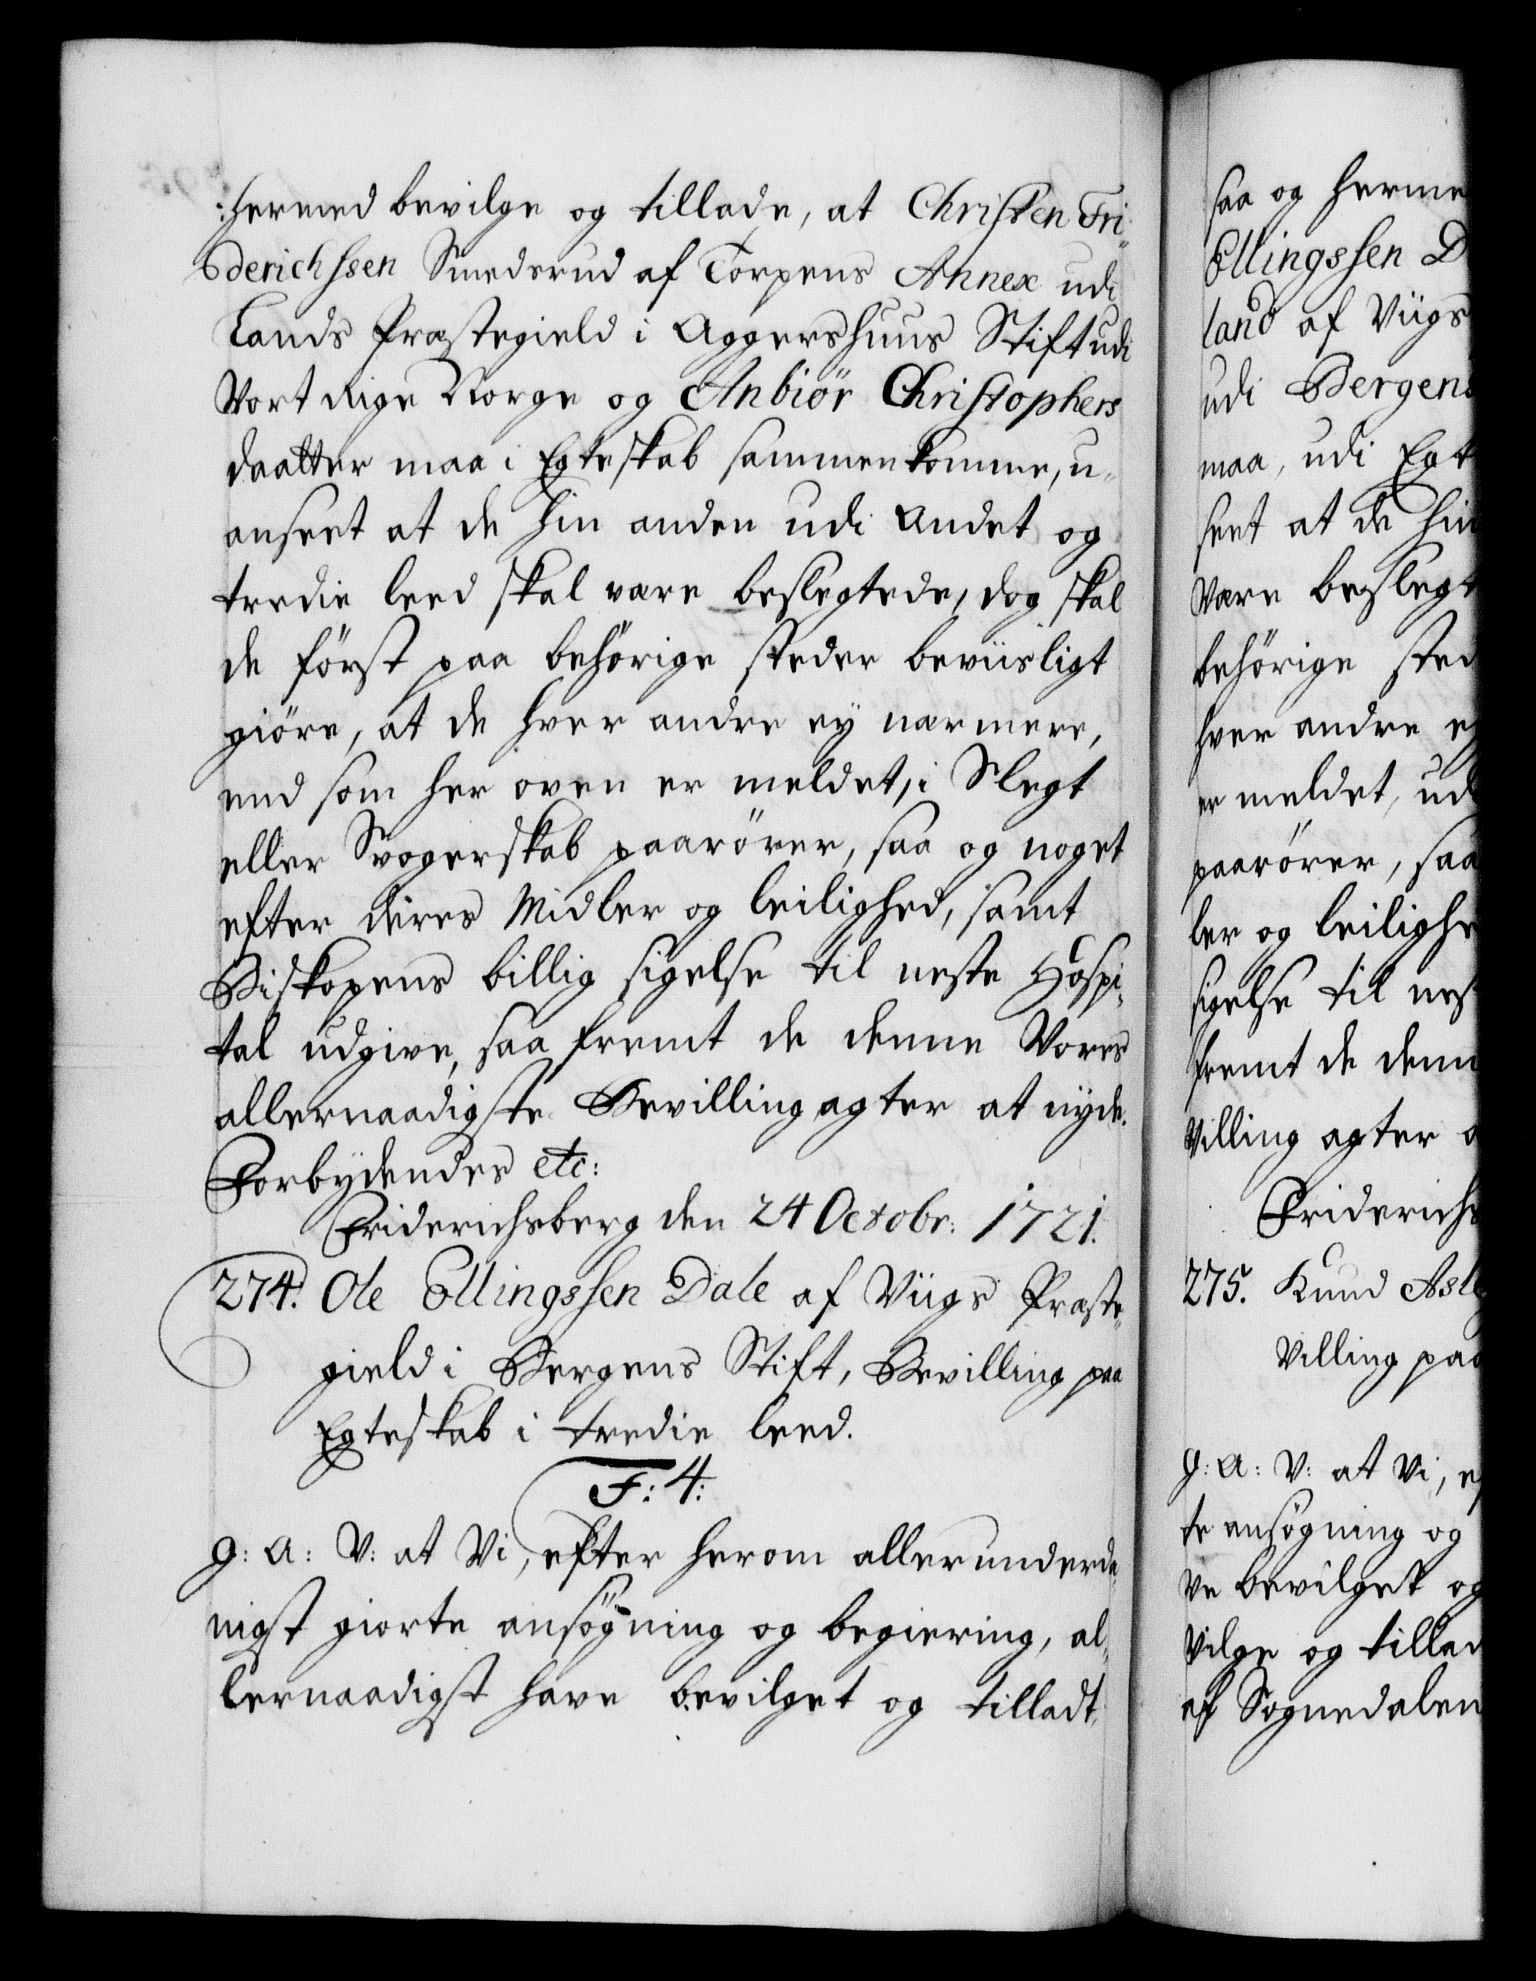 :hermed bevilge og tillade, at Christen Fri-
derichssen Smedsrud af Torpens Annex udi
Lands Præstegield i Aggershuus Stift udi
Vort Rige Norge og Anbiör Christophers
daatter maa i Egteskab sammenkomme, u-
anseet at de hin anden udi Andet og
tredie leed skal være beslegtede, dog skal
de först paa behörige steder beviisligt
giöre, at de hver andre ey nærmere,
end som her oven er meldet, i Slegt
eller Svogerskab paarörer, saa og noget
efter deres Midler og leilighed, samt
Biskopens billig sigelse til neste Hospi-
tal udgive, saa fremt de denne Vores
allernaadigste Bevilling agter at nyde.
Forbydendes etc:
Friderichsberg den 24 Octobr: 1721.
274. Ole Ellingssen Dale af Viigs Præste-
gield i Bergens Stift, Bevilling paa
Egteskab i tredie leed.
F: 4:
G: A: V: at Vi, efter herom allerunderda-
nigst giorte ansögning og begiering, al-
lernaadigst have bevilget og tilladt,
saa og herme
Ellingssen D
land af Viigs
udi Bergens
maa, udi Egt
seet at de hin
være beslegt
behörige sted
hver andre ey
er meldet, udi
paarörer, saa
ler og leilighe
sigelse til nest
fremt de denn
villing agter a
Friderichs
275. Knud Asle
villing paa
G: A: V: at Vi, ef
te ansögning og
ve bevilget og
vilge og tillad
af Sognedalen